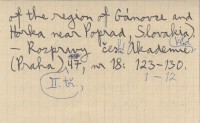 of the region of Gánovce and
Horka near Poprad, Slovakia).
— Rozpravy česk Akademie
(Praha) 47, nr 18: 123-130.
II. tř. 1-12